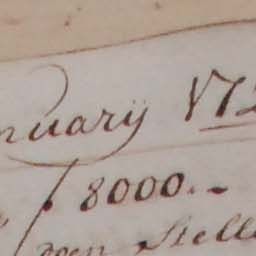 nuarÿ 172
8000.-
den Stell